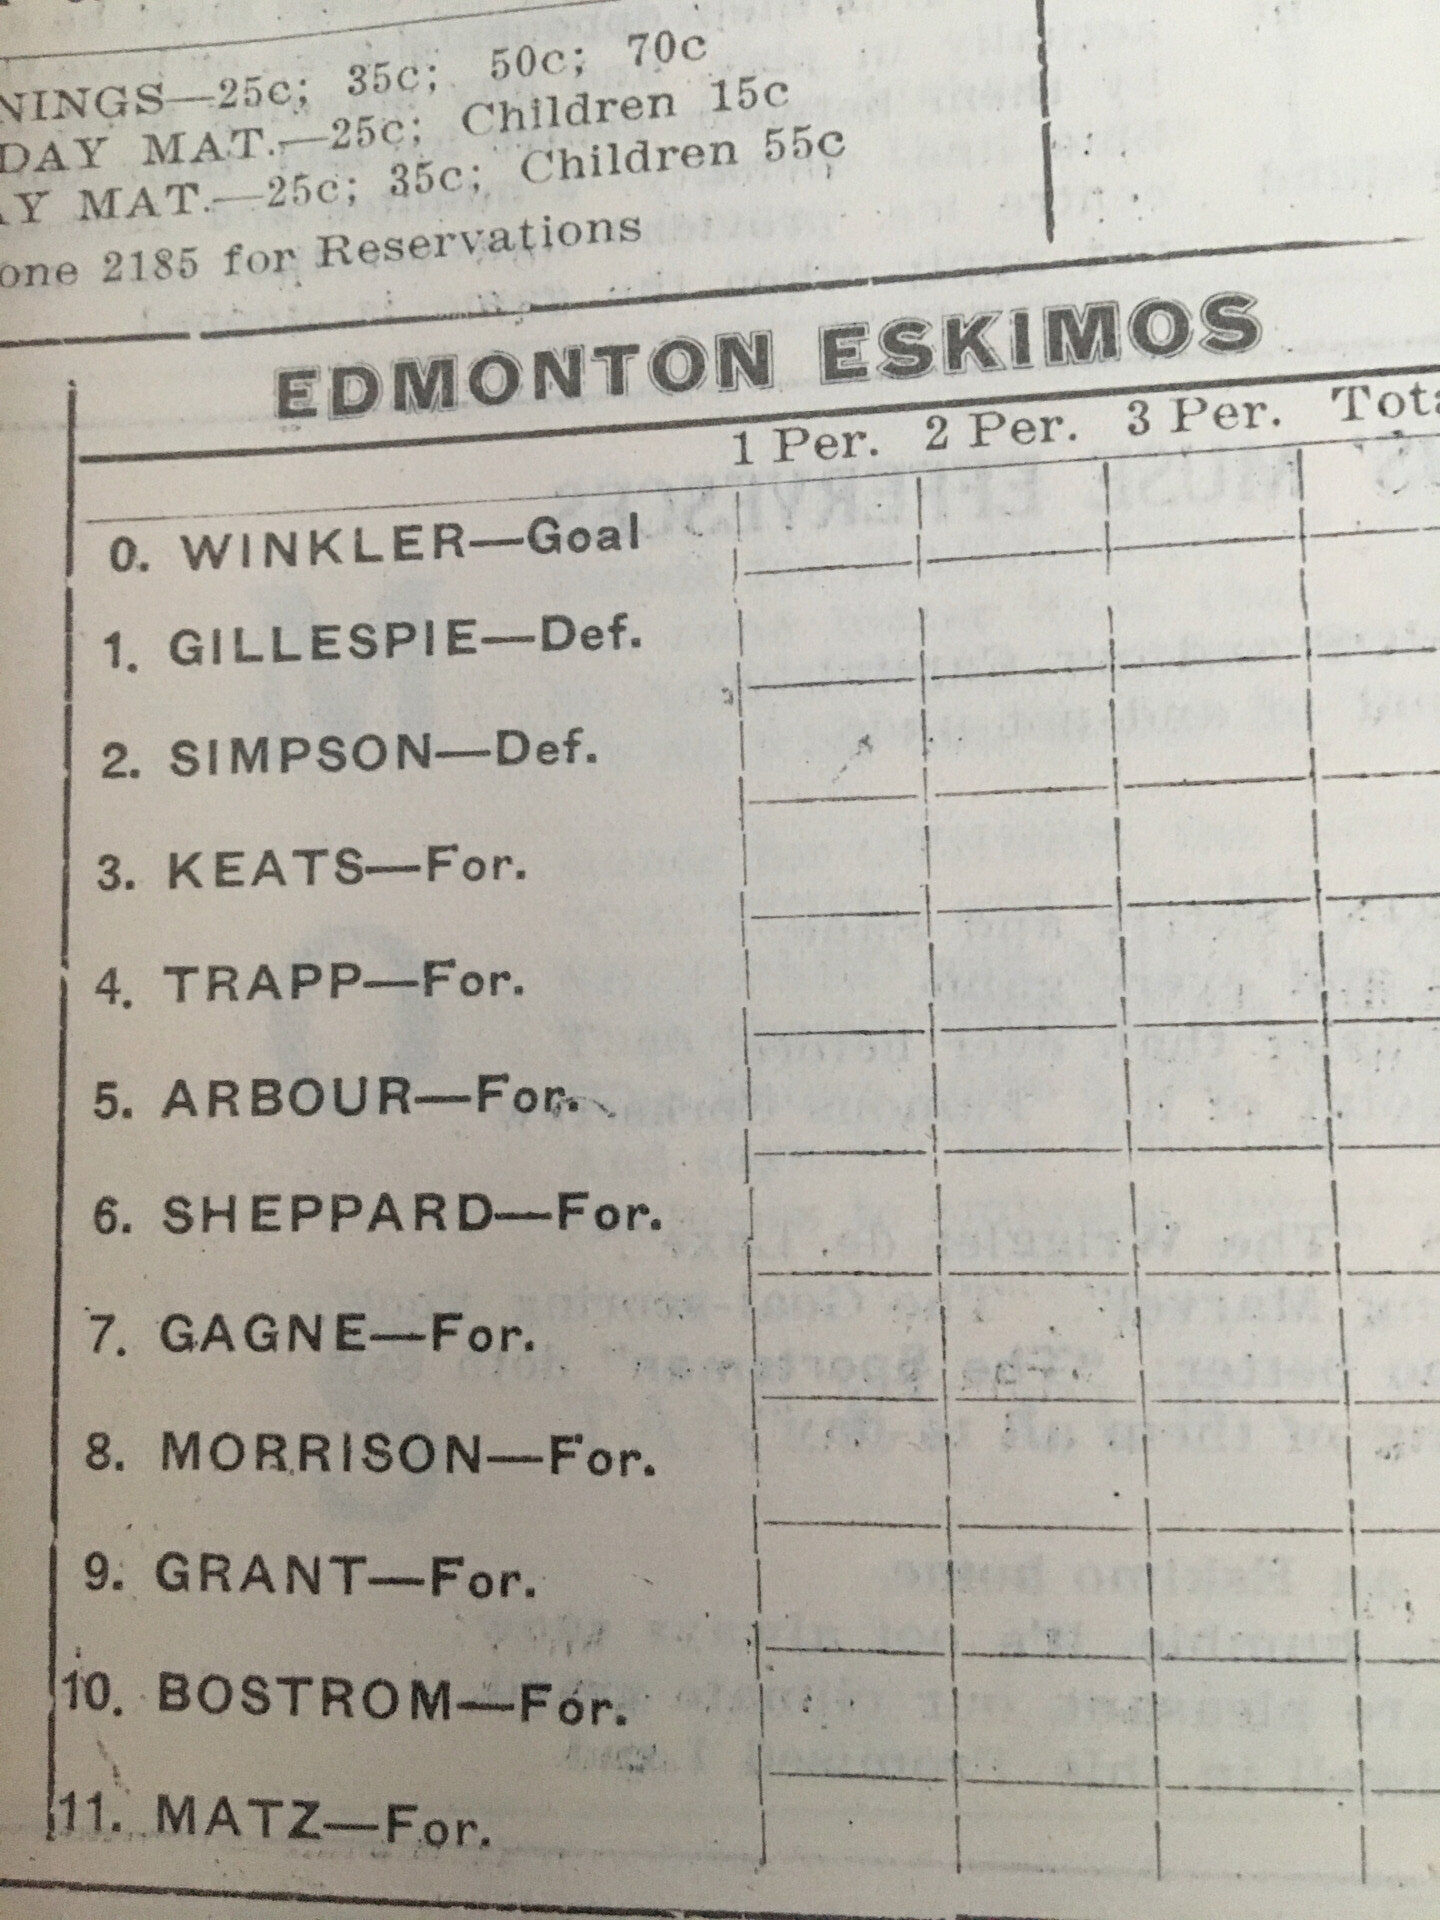 NINGS—25c; 35c; 50c; 70c
DAY MAT.—25c; Children 15c
AY MAT.—25c; 35c; Children 55c
one 2185 for Reservations
EDMONTON ESKIMOS
1 Per. 2 Per. 3 Per. Tota
0. WINKLER—Goal
1. GILLESPIE—Def.
2. SIMPSON—Def.
3. KEATS—For.
4. TRAPP—For.
5. ARBOUR—For.
6. SHEPPARD—For.
7. GAGNE—For.
8. MORRISON—For.
9. GRANT—For.
10. BOSTROM—For.
11. MATZ—For.